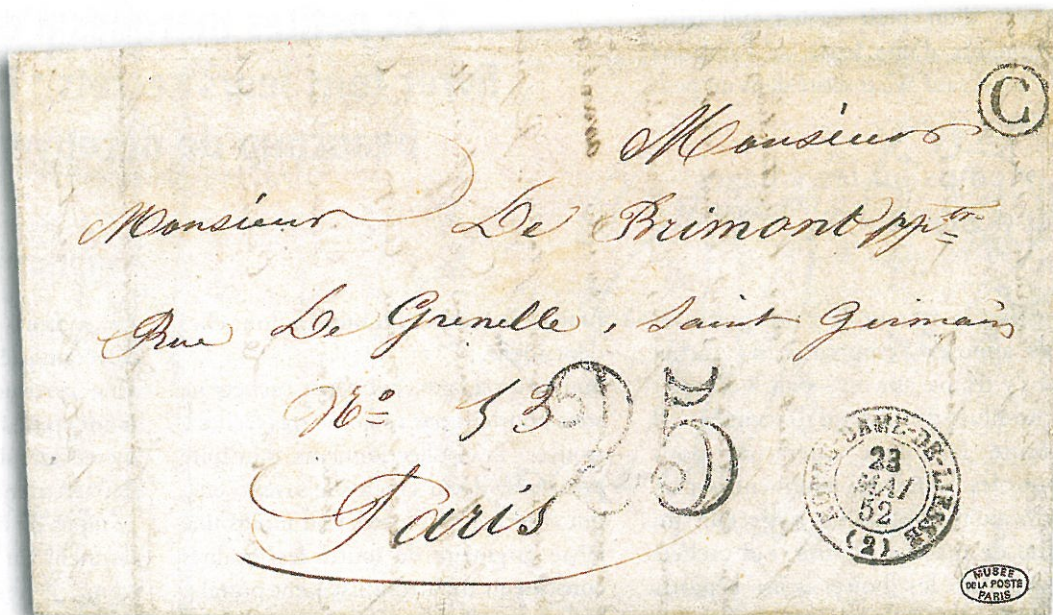 C
Monsieur
Monsieur De Brimont pptre
Rue De Grenelle, Saint Germain
No 53
25
Paris
NOTRE-DAME-DE-LIESSE
23
MAI
52
(2)
MUSÉE
DE LA POSTE
PARIS